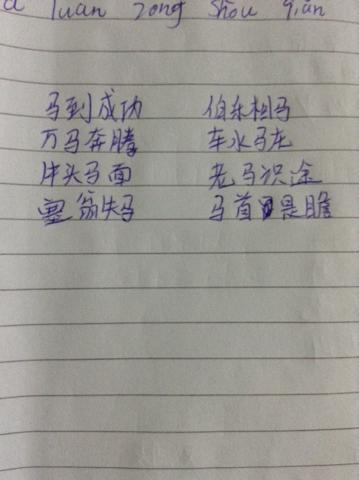 luan zong shou qian
马到成功 伯乐相马
万马奔腾 车水马龙
牛头马面 老马识途
塞翁失马 马首是瞻